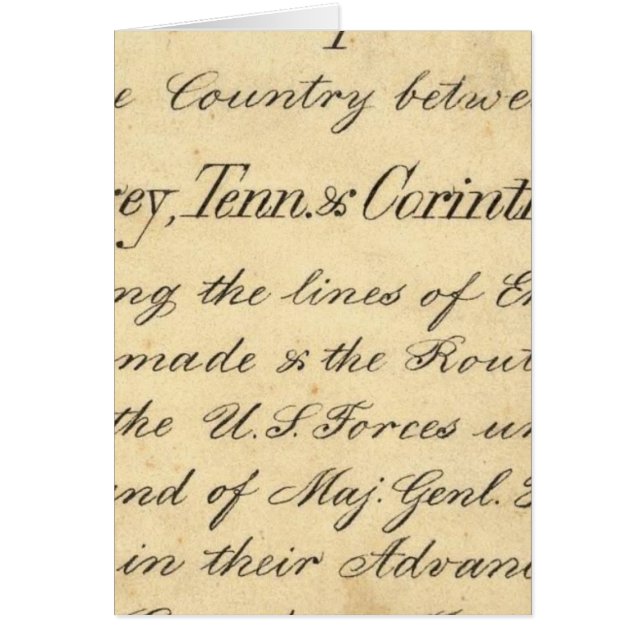 e Country betwe
rey, Tenn. & Corint
ng the lines of En
made & the Rout
the U.S. Forces un
nd of Maj. Genl.
in their Advan